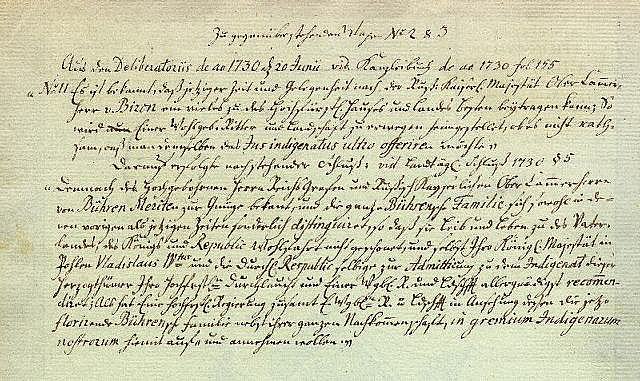 Zu gegenüberstehenden Wapen No 2 & 3
Aus den Deliberatoriis de ao 1730 d 20 Junii vid. Kanzleibuch de ao 1730 fol 155
No 11 Es ist bekannt, daß jetziger Zeit und Gelegenheit nach der Russ. Kaiserl. Majestät Ober Cammer
herr v. Biron ein vieles zu des Hochfürstl. Hauses und Landes besten beytragen kann; Es
wird nun Einer Wohlgeb. Ritter und Landschaft zu erwegen heimgestellet, ob es nicht rath-
sam, daß man demselben das Jus indigenatus ultro offeriren möchte.
Darauf erfolgte nachstehender Schluß: vid. Landtägl. Schluß 1730 § 5
Demnach des Hochgebohrnen Herrn Reichs Grafen und Russisch Kayserlichen Ober Cammerherrn
von Bühren Meriten zur Gnüge bekannt, und die ganze Bührensche Familie sich sowohl in de-
nen vorigen als jetzigen Zeiten sonderlich distinguiret, so daß sie Leib und Leben zu des Vater-
landes, des Königs und Republic Wohlfahrt nicht geschonet, und selbst Ihro Königl. Majestät in
Pohlen Vladislaus IVtus und die Durchl. Respublic selbige zur Admittirung zu dem Indigenat dieser
Herzogthümer Ihro Hochfürstl. Durchlaucht und Einer Wgb. R. und Ldschfft allergnädigst recomen-
diret; Als hat Eine Hochfürstl. Regierung zusamt E. Wgb. R. u. Ldschfft in Ansehung dessen die jetzo
florirende Bührensche Familie nebst ihrer ganzen Nachkommenschaft, in gremium Indigenarum
nostrorum hiemit auf- und annehmen wollen.